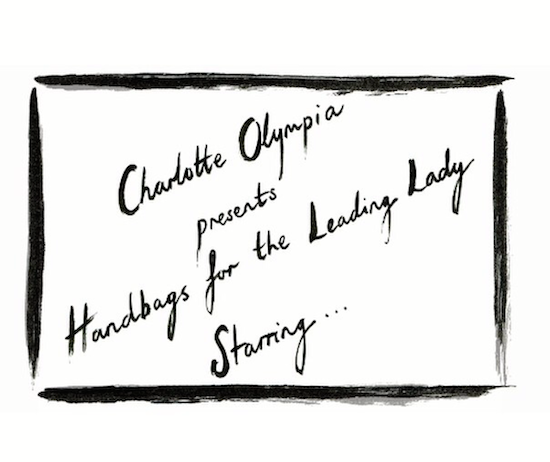 Charlotte Olympia
presents
Handbags for the Leading Lady
Starring...